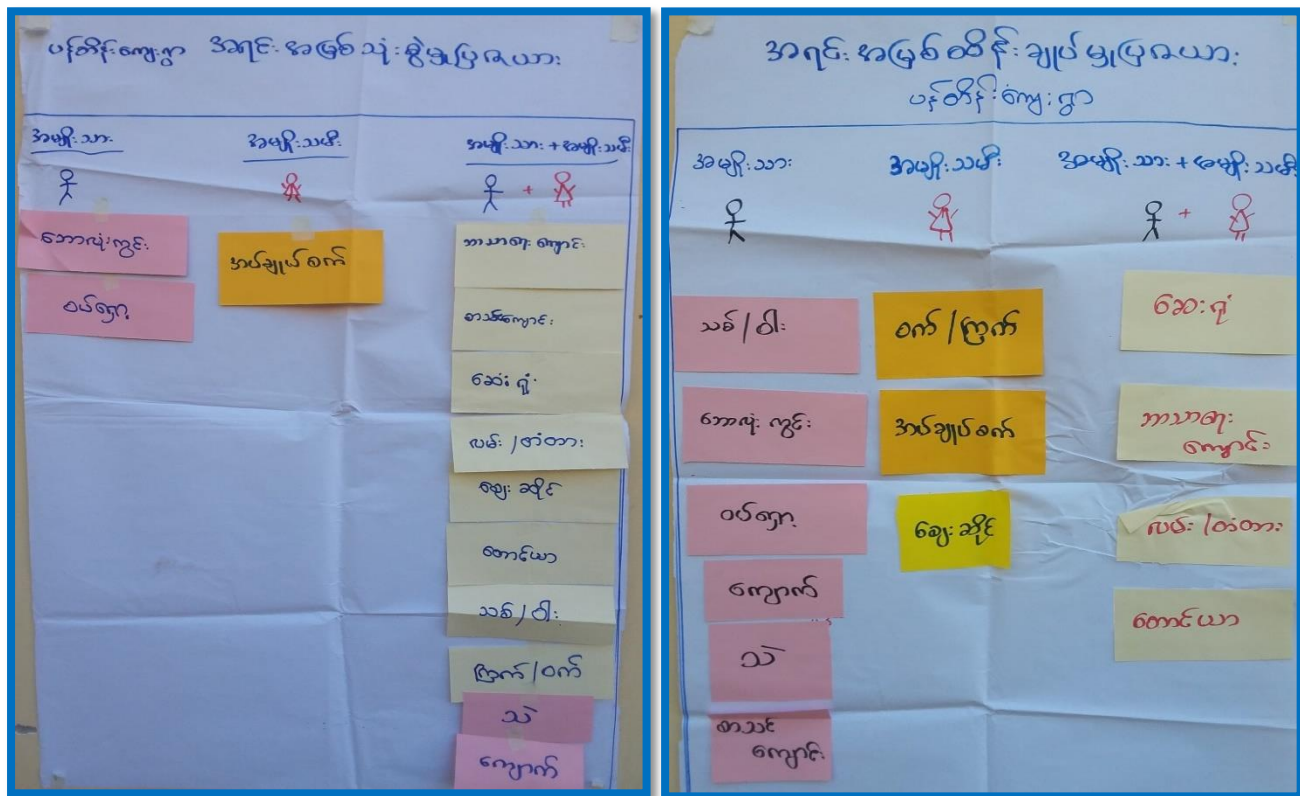 ပန်တိန်းကျေးရွာ အရင်းအမြစ်သုံးစွဲမှုပြဇယား
အမျိုးသား အမျိုးသမီး အမျိုးသား + အမျိုးသမီး
+
ဘောလုံးကွင်း
ဝပ်ရှော့
အပ်ချုပ်စက်
ဘာသာရေးကျောင်း
စာသင်ကျောင်း
ဆေးရုံ
လမ်း/တံတား
ဈေးဆိုင်
တောင်ယာ
သစ်/ဝါး
ကြက်/ဝက်
သဲ
ကျောက်
အရင်းအမြစ်ထိန်းချုပ်မှုပြဇယား
ပန်တိန်းကျေးရွာ
အမျိုးသား အမျိုးသမီး အမျိုးသား + အမျိုးသမီး
+
သစ်/ဝါး
ဘောလုံးကွင်း
ဝပ်ရှော့
ကျောက်
သဲ
စာသင်
ကျောင်း
ဝက်/ကြက်
အပ်ချုပ်စက်
ဈေးဆိုင်
ဆေးရုံ
ဘာသာရေး
ကျောင်း
လမ်း/တံတား
တောင်ယာ